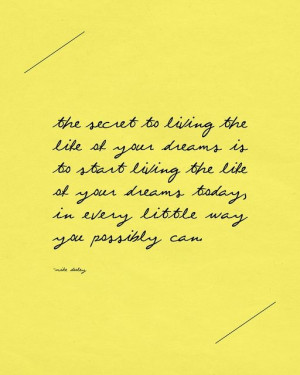 the secret to living the
life of your dreams is
to start living the life
of your dreams today,
in every little way
you possibly can.
mike dooley